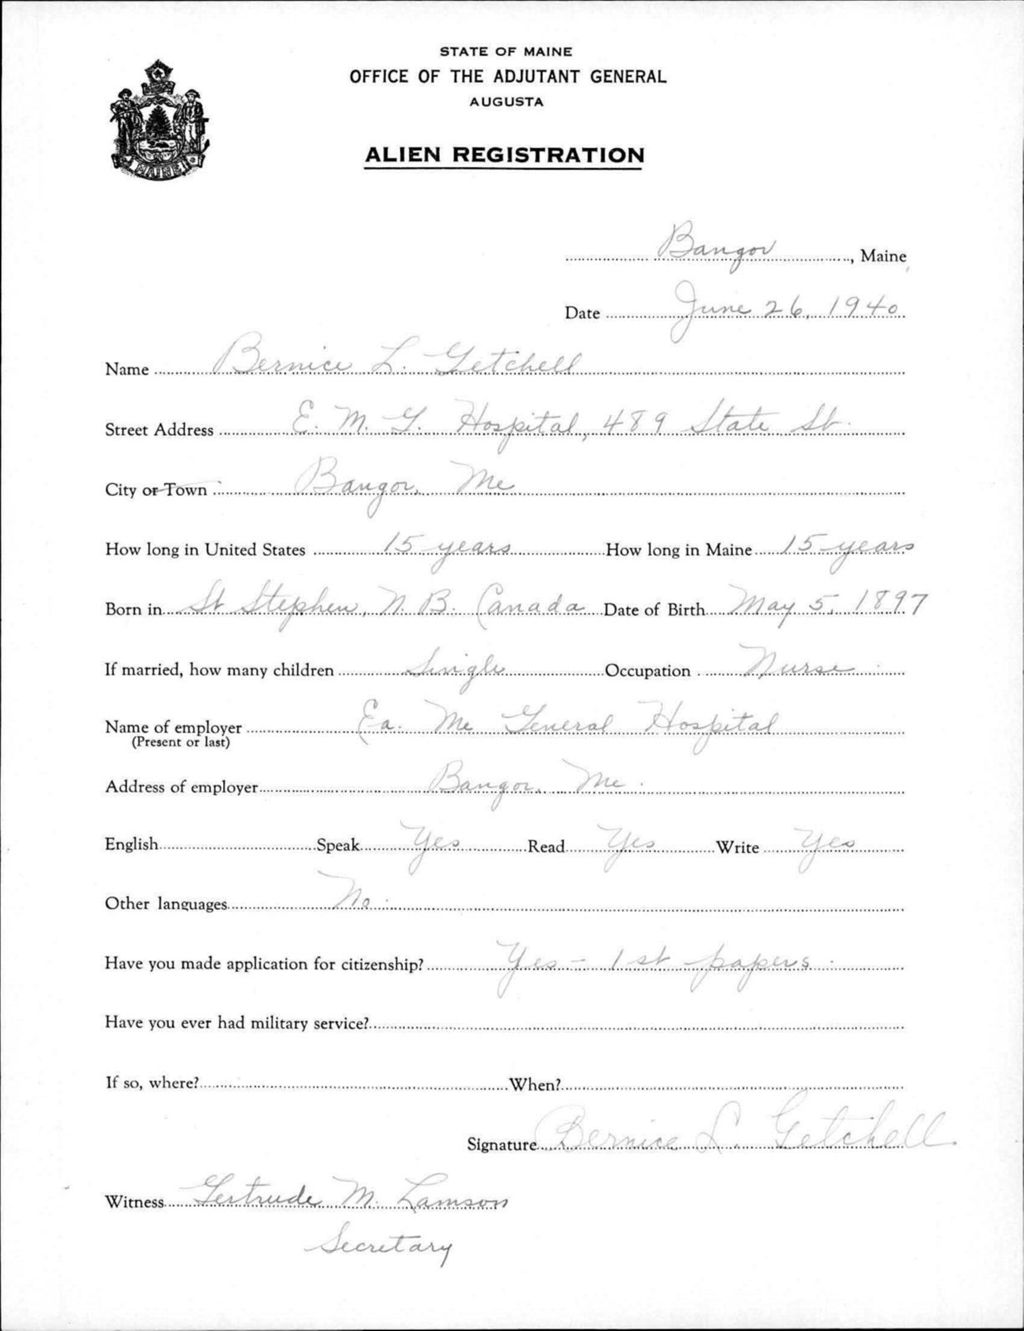 STATE OF MAINE
OFFICE OF THE ADJUTANT GENERAL
AUGUSTA
ALIEN REGISTRATION
MAINE
Bangor, Maine
Date June 26, 1940
Name Bernice L. Getchell
Street Address E. M. G. Hospital, 489 State St.
City or Town Bangor, Me
How long in United States 15 years How long in Maine 15 years
Born in St Stephen, N. B. Canada Date of Birth May 5, 1897
If married, how many children Single Occupation Nurse
Name of employer Ea. Me General Hospital
(Present or last)
Address of employer Bangor, Me.
English Speak Yes Read Yes Write Yes
Other languages No.
Have you made application for citizenship? Yes - 1st papers.
Have you ever had military service?
If so, where? When?
Signature Bernice L. Getchell
Witness Gertrude M. Lamson
Secretary